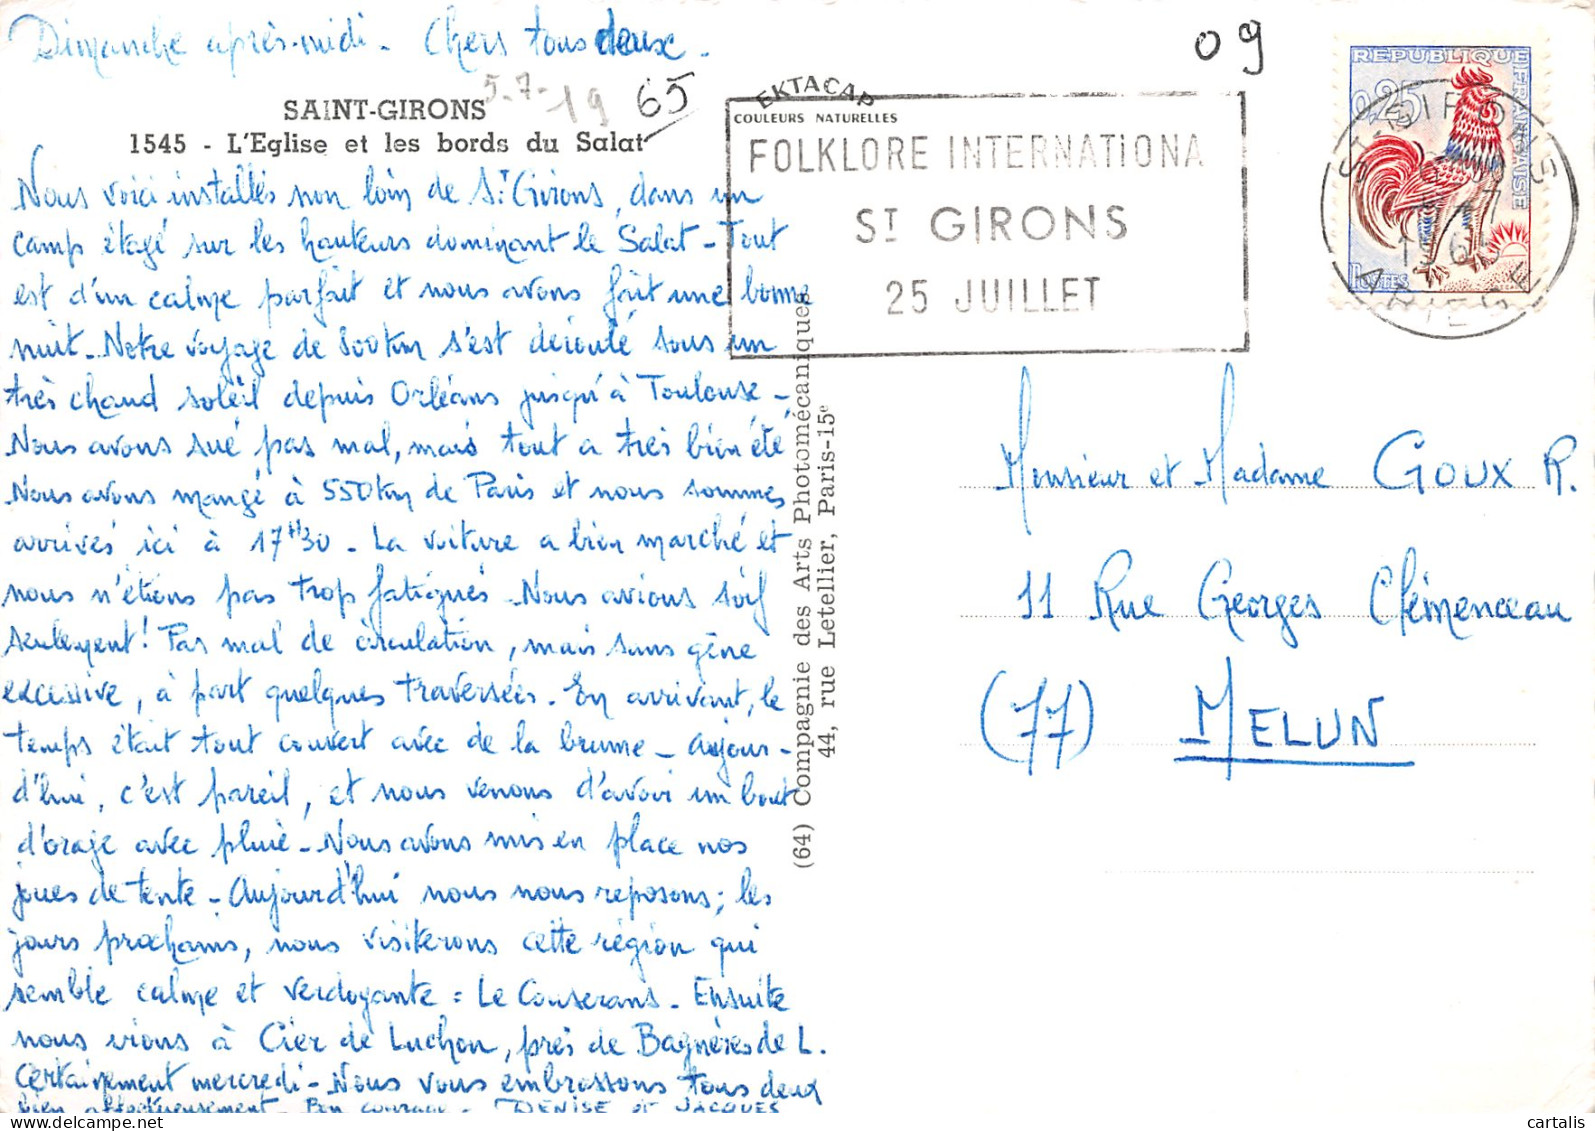 Dimanche après-midi - Chers tous deux -
5-7-19 65
SAINT-GIRONS
1545 - L'Eglise et les bords du Salat
Nous voici installés non loin de St Girons, dans un
camp étagé sur les hauteurs dominant le Salat - Tout
est d'un calme parfait et nous avons fait une bonne
nuit - Notre voyage de 800km s'est déroulé sous un
très chaud soleil depuis Orléans jusqu'à Toulouse -
Nous avons sué pas mal, mais tout a très bien été
Nous avons mangé à 550km de Paris et nous sommes
arrivés ici à 17H30 - La voiture a bien marché et
nous n'étions pas trop fatigués - Nous avions soif
seulement! Pas mal de circulation, mais sans gêne
excessive, à part quelques traversées. En arrivant, le
temps était tout couvert avec de la brume - Aujour-
d'hui, c'est pareil, et nous venons d'avoir un bout
d'orage avec pluie - Nous avons mis en place nos
joues de tente - Aujourd'hui nous nous reposons; les
jours prochains, nous visiterons cette région qui
semble calme et verdoyante : Le Couserans - Ensuite
nous irons à Cier de Luchon, près de Bagnères de L.
Certainement mercredi - Nous vous embrassons tous deux
bien affectueusement - Bon courage - DENISE et JACQUES
EKTACAP
COULEURS NATURELLES
FOLKLORE INTERNATIONA
ST GIRONS
25 JUILLET
(64) Compagnie des Arts Photomécaniques
44, rue Letellier, Paris-15e
09
REPUBLIQUE FRANÇAISE
0,25
POSTES
ST GIRONS
1965
ARIEGE
Monsieur et Madame GOUX R.
11 Rue Georges Clémenceau
(77) MELUN
cartalis